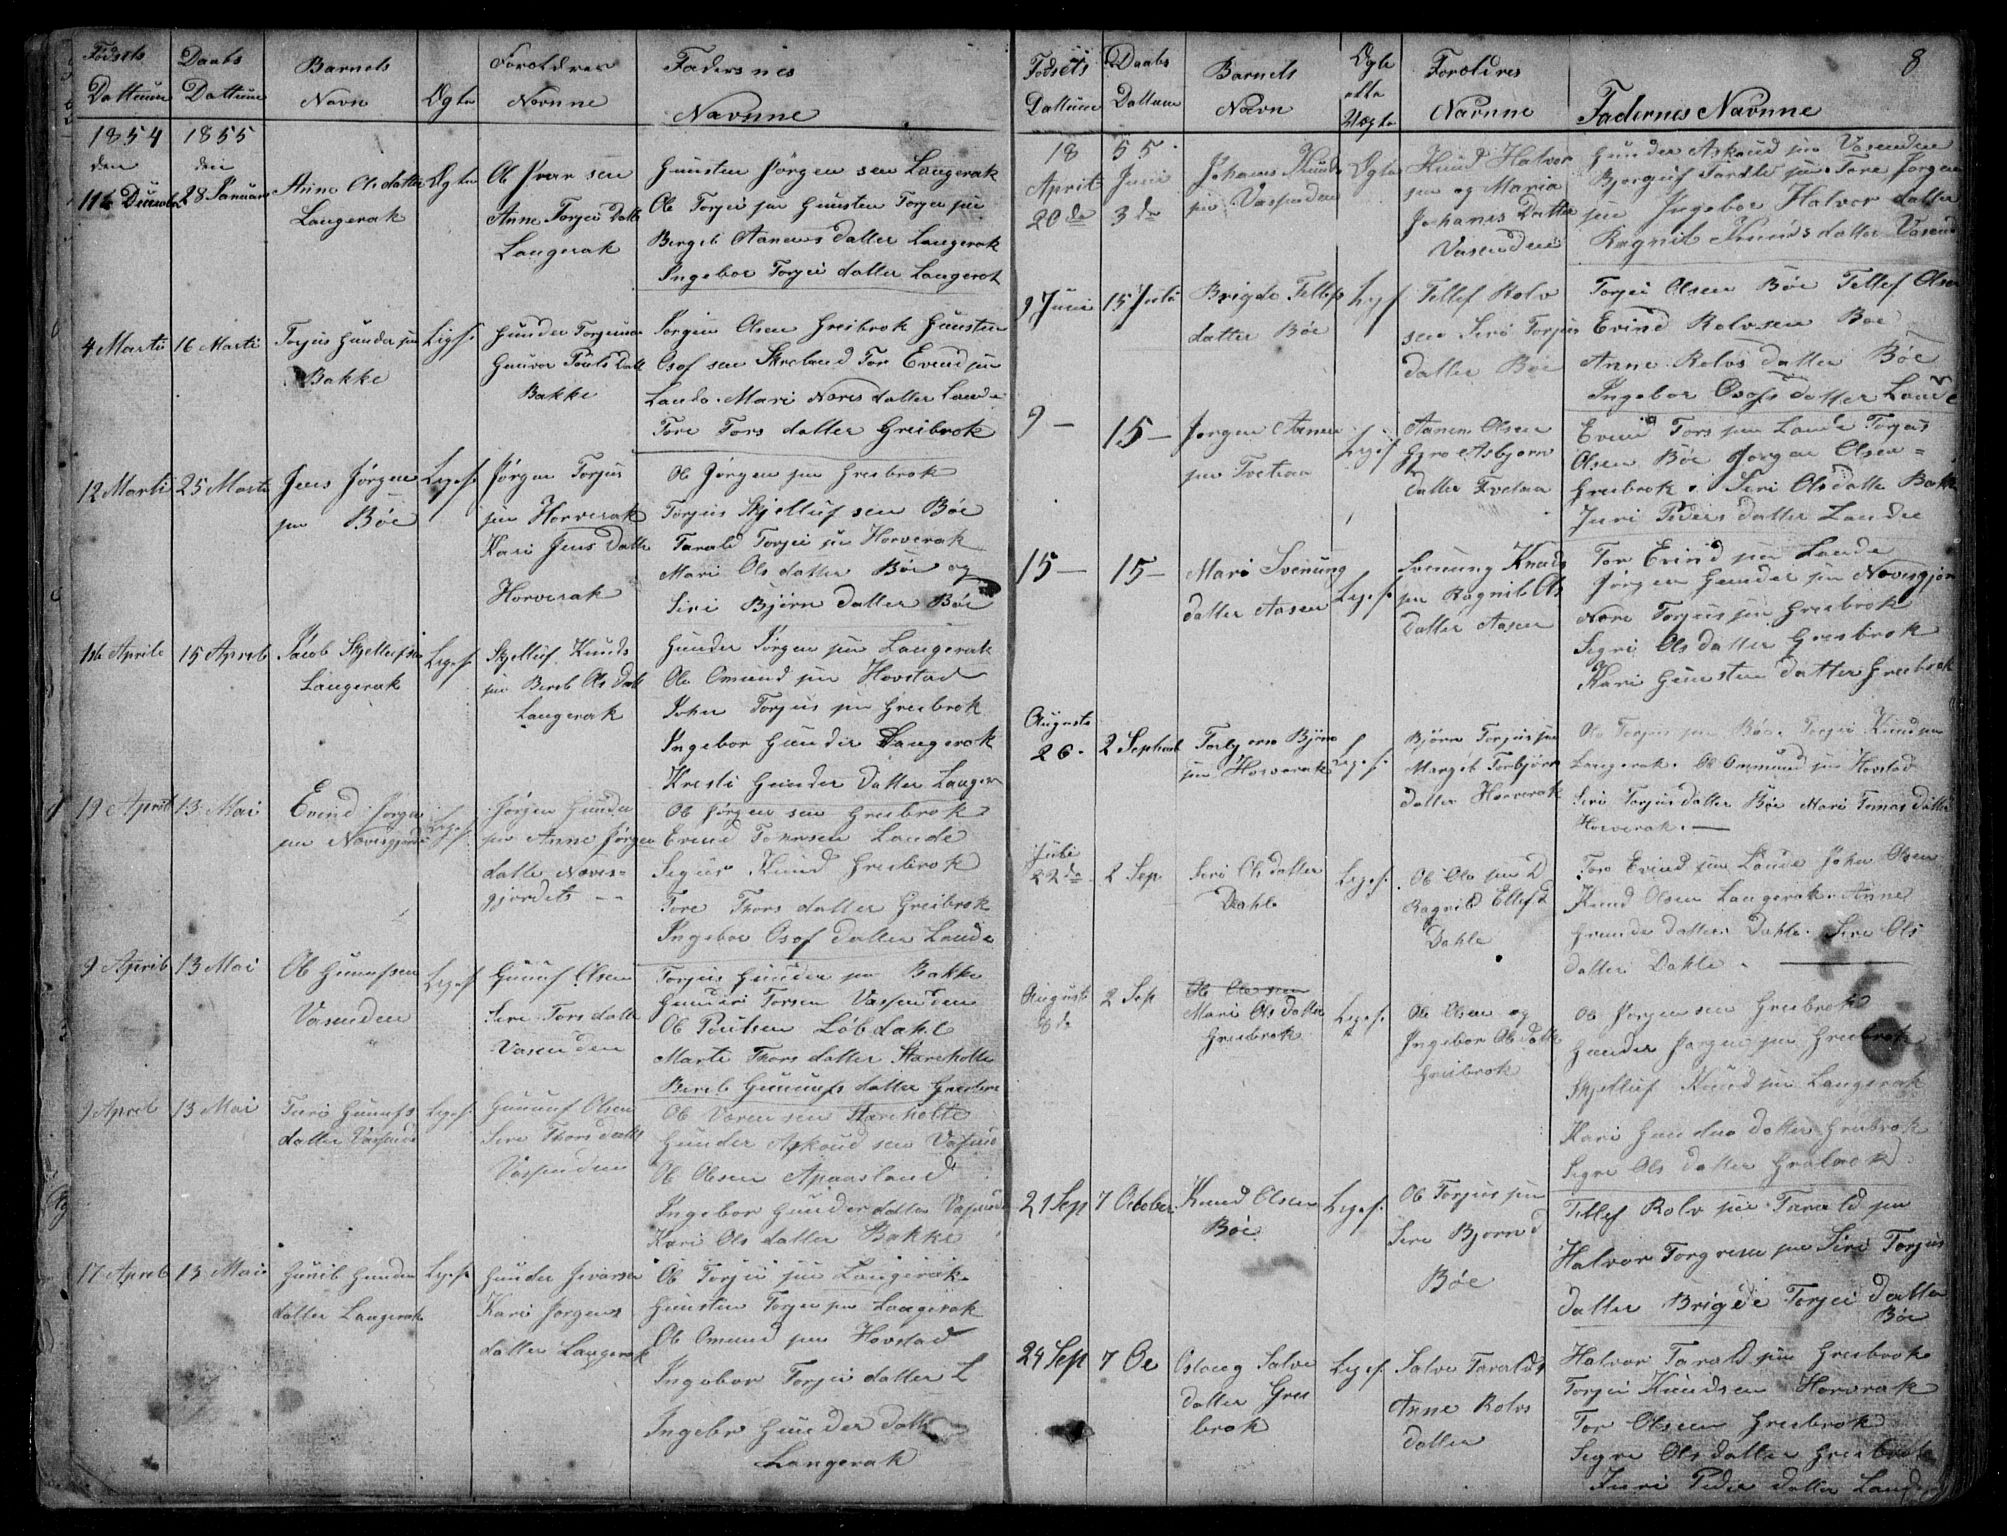 Fødsels Dattum
Daabs Dattum
Barnets Navn
Ægte
Forældres Navnne
Fadernes Navnne
1854 den
1855 den
28 Januar
Anne Olsdatter Langerak
Ægte
Ole Ivar sen
Anne Torjei Datt
Langerak
Gunsten Jørgen sen Langerak
Ole Torjei sen Gunsten Torjei sen
Bergit Aanens datter Langerak
Ingebor Torjei datter Langerak
4 Marti
16 Marti
Torjus Gunder sen
Bakke
Ligs.
Gunder Torjusen
Gunvor Pouls Datt
Bakke
Jørgen Olsen Greibrok Gunsten
Osof sen Skreland Tor Evend sen
Lande. Mari Nores datter Lande
Tore Tors datter Greibrok
12 Marti
25 Marti
Jens Jørgen
sen Bøe
Ligs.
Jørgen Torjus
sen Horverak
Kari Jens Datte
Horverak
Ole Jørgen sen Greibrok
Torjus Skjelluf sen Bøe
Tarald Torjei sen Horverak
Mari Ols datter Bøe og
Siri Bjørn datter Bøe
Aprile
15 Apreb
Jacob Skjellufsen
Langerak
Ligs.
Skjelluf Knuds
sen Bereb Ols Datt
Langerak
Gunder Jørgen sen Langerak
Ole Omund sen Hovstad
John Torjus sen Greibrok
Ingebor Gunder Langerak
Kresti Gunder datter Langera
19 Aprill
13 Mai
Evind Jørgen
sen Noresgjorde
Ligs.
Jørgen Gunder
sen Anne Jørgen
datte Nores=
gjordet
Ole Jørgen sen Greibrok
Evend Tommsen Lande
Sigur Knud Greibrok
Tore Thors datter Greibrok
Ingebor Osof datter Lande
9 Aprib
13 Mai
Ole Gunufsen
Vasenden
Ligs.
Gunuf Olsen
Sire Tors datte
Vasenden
Torjus Gunder sen Bakke
Gunder Torsen Vassenden
Ole Poulsen Løbdahl
Marte Thors datter Stareholte
Bereb Gunufs datter Greibro
9 Apreb
13 Mai
Turi Gunufs
datter Vassende
Ligs.
Gunuf Olsen
Sire Thors datte
Vassenden
Ole Voren sen Stareholte
Gunder Askoud sen Vasend
Ole Olsen Apaasland
Ingebor Gunder datter Vasend
Kari Ols datter Bakke
17 Apreb
13 Mai
Gunib Gunder
datter Langerak
Ligs.
Gunder Ivarsen
Kari Jørgens
datter Langerak
Ole Torjei sen Langerak
Gunsten Torjei sen Langerak
Ole Omund sen Hovstad
Ingebor Torjei datter L
Ingebor Gunder datt
Langerak
8
Fødsels Dattum
Daabs Dattum
Barnets Navn
Ægte eller Uægte
Forældres Navnne
Fadernes Navnne
18
55.
April
20de
Juni
3de
Johans Knud
sen Vassenden
Ægte
Knud Halvor
sen og Maria
Johanes Datter
Vasenden
Gunder Askoud sen Vasenden
Bjorguf Tardle sen. Tore Jørgen
sen Ingebor Halvor datter
Ragnil Knuds datter Vasend
9 Juni
15 Juli
Brigde Tellefs
datter Bøe
Ligs.
Tellef Rolv
sen Siri Torjus
datter Bøe
Torjei Olsen Bøe Tellef Olsen
Evind Rolvsen Bøe
Anne Rolvs datter Bøe
Ingebor Osofs datter Lande
9 —
15 —
Jørgen Aanen
sen Tvetaa
Ligs.
Aanen Olsen
Gyro Asbjorn
datter Tvetaa
Evind Tors sen Lande Torjus
Olsen Bøe Jørgen Olsen =
Greibrok. Siri Olsdatte Bakk
Juri Peders datter Lande
15 —
15 —
Mari Svenung
datter Aasen
Ligs.
Svenung Knuds
sen Ragnil Ols
datter Aasen
Tor Evind sen Lande
Jørgen Gunder sen Noresgjor
Nore Torjus sen Greibrok
Sigri Ols datter Greibrok
Kari Gunsten datter Greibrok
Augusti
26.
2 Septemb
Torbjorn Bjørn
sen Horverak
Ligs.
Bjørn Torjus sen
Margit Torbjørn
datter Horverak
Ole Torjus sen Bøe. Torjei Knud sen
Langerak. Ole Ommund sen Hovstad
Siri Torjus datter Bøe Mari Tomas datter
Horverak. —
Juli
22de
2 Sep
Siri Ols datter
Dahle
Ligs.
Ole Ole sen D
Ragnild Ellef D
Dahle
Tore Evind sen Lande John Olsen
Knud Olsen Langerak. Anne
Gunder datter Dahle. Sire Ols
datter Dahle.
August
8de
2 Sep
Ole Olesen
Mari Ols datter
Greibrok
Ligs.
Ole Olsen og
Ingebor Ols datte
Greibrok
Ole Jørgen sen Greibrok
Gunder Jørgen sen Greibrok
Skjelluf Knud sen Langerak
Kari Gunder datter Greibrok
Sigre Ols datter Greibrok
21 Sep
7 October
Knud Olsen
Bøe
Ligs.
Ole Torjus sen
Sire Bjørn d
Bøe
Tellef Rolv sen Tarald sen
Halvor Torgrem sen Siri Torjus
datter Brigde Torjei datter
Bøe
24 Sep
7 Oc
Oslaug Salve
datter Grei
brok
Ligs.
Salve Taralds
Anne Rolvs
datter
Halvor Tarald sen Greibrok
Torjei Knudsen Horverak
Tor Olsen Greibrok
Sigre Ols datter Greibrok
Juri Peder datter Lande